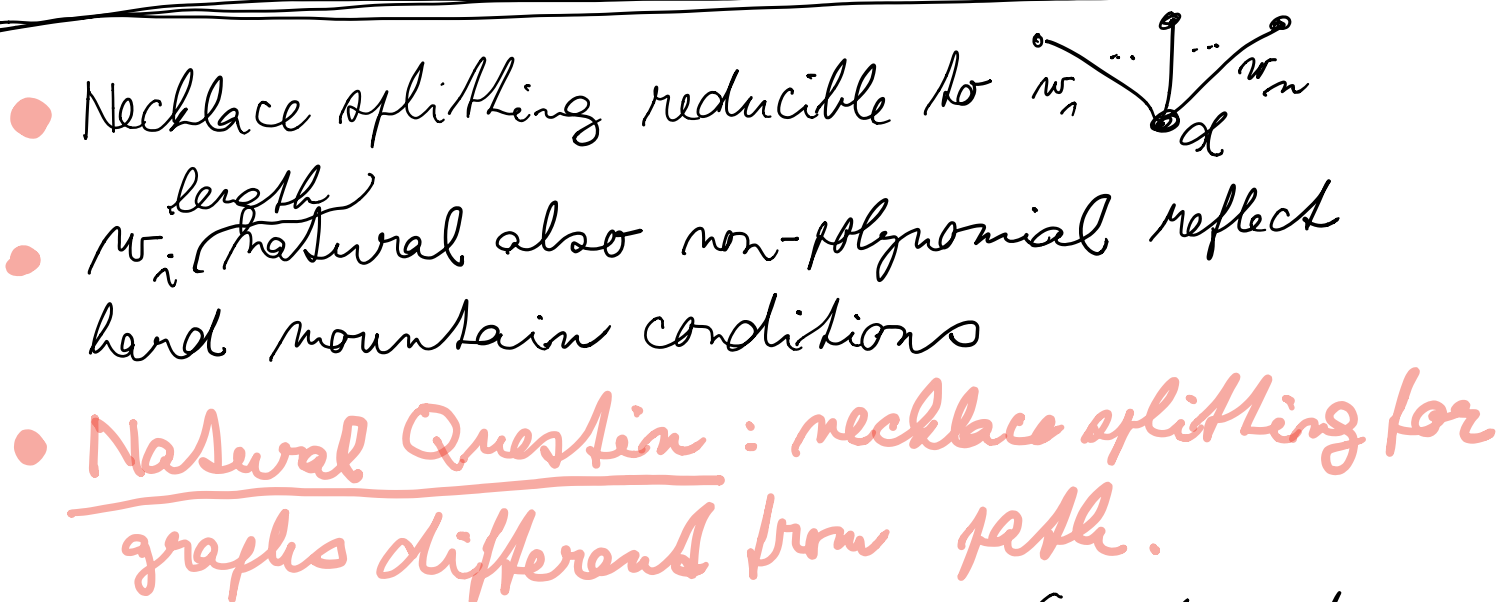 Necklace splitting reducible to w₁ ... ... wₙ α
length
wᵢ (natural also non-polynomial reflect
hard mountain conditions
Natural Questin : necklace splitting for
graphs different from path.